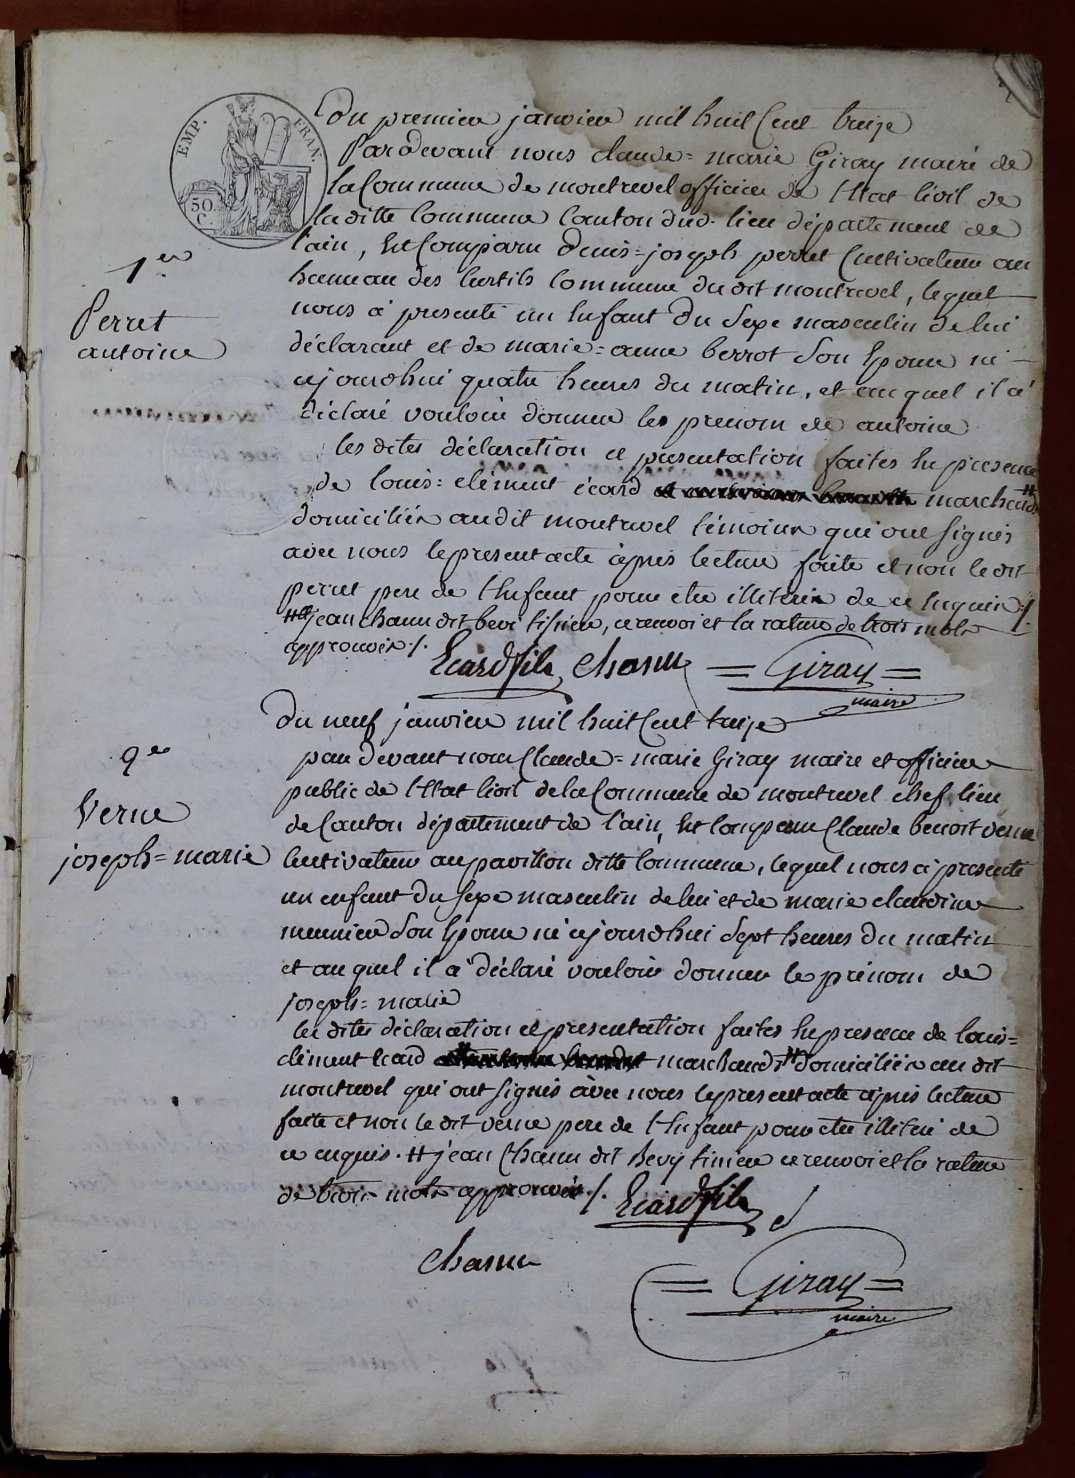 EMP. FRAN.
50. C.
Du premier janvier mil huit Cent treize
Pardevant nous claude=marie Giray maire de
la Commune de montrevel officier de l'Etat Civil de
la ditte Commune Canton dud. lieu département de
l'ain, Est Comparu denis=joseph perret Cultivateur au
hameau des Curtils Commune du dit montrevel, lequel
nous à presenté un Enfant du Sexe masculin de lui
déclarant et de marie=anne berrot Son Epouse né
ajourdhui quatre heures du matin, et au quel il à
déclaré vouloir donner les prenom de antoine
les dites déclaration et presentation faites En presence
de louis=clément écard marchands #
domiciliés audit montrevel témoins qui ont Signés
avec nous le present acte après lecture faite et non le dit
perret pere de l'Enfant pour etre illiteré de ce Enquis ./.
# et jean chanu dit tisier, ce renvoi et la rature de trois mots
approuvés ./.
Ecard fils Chanu = Giray =
maire
1er
Perret
antoine
Du neuf janvier mil huit Cent treize
par devant nous Claude=marie Giray maire et officier
public de l'Etat Civil de la Commune de montrevel chef lieu
de Canton département de l'ain, Est Comparu Claude benoit verne
Cultivateur au pavillon ditte Commune, lequel nous à presenté
un enfant du Sexe masculin de lui et de marie claudine
meunier Son Epouse né ajourdhui Sept heures du matin
et au quel il à déclaré vouloir donner le prénom de
joseph=marie
les dites déclaration et presentation faites En presence de louis=
clément Ecard marchands # domiciliés au dit
montrevel qui ont Signés avec nous le present acte après lecture
faite et non le dit verne pere de l'Enfant pour etre illiteré de
ce enquis. # jean Chanu dit ce renvoi et la rature
de trois mots approuvés ./. Ecard fils
Chanu
= Giray =
maire
2e
Verne
joseph=marie